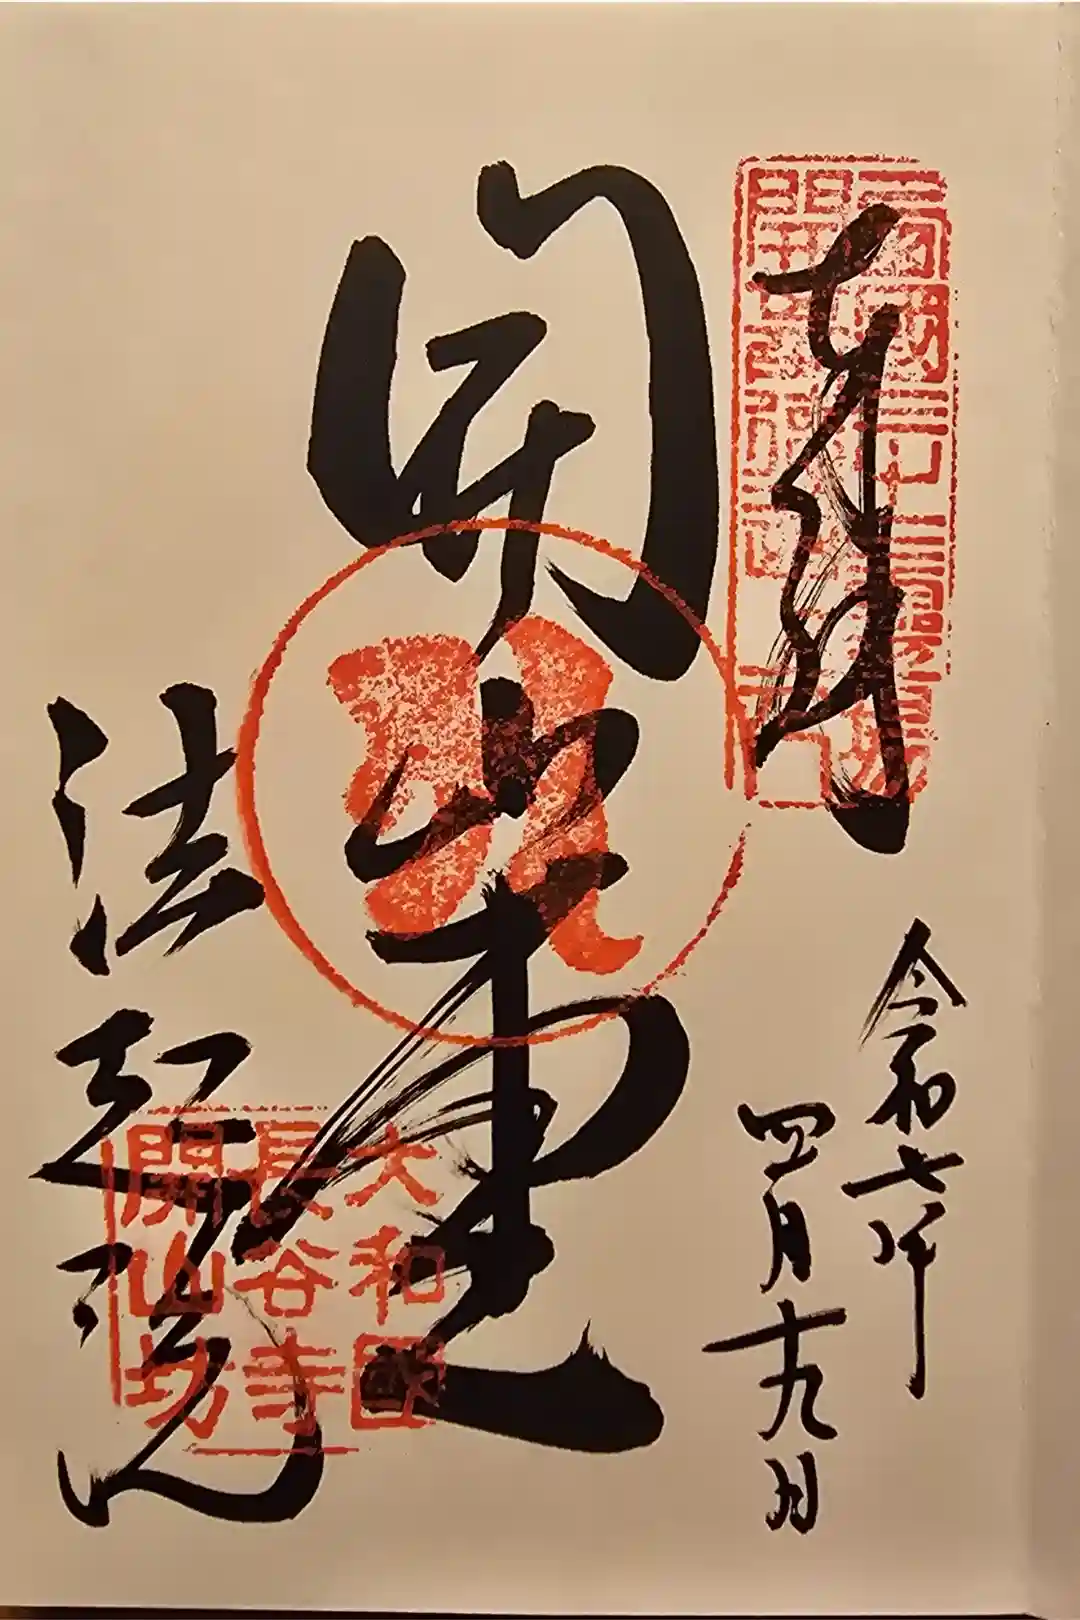 奉拝
令和七年
四月十九日
開山堂
法起院
大和國
長谷寺
開山坊